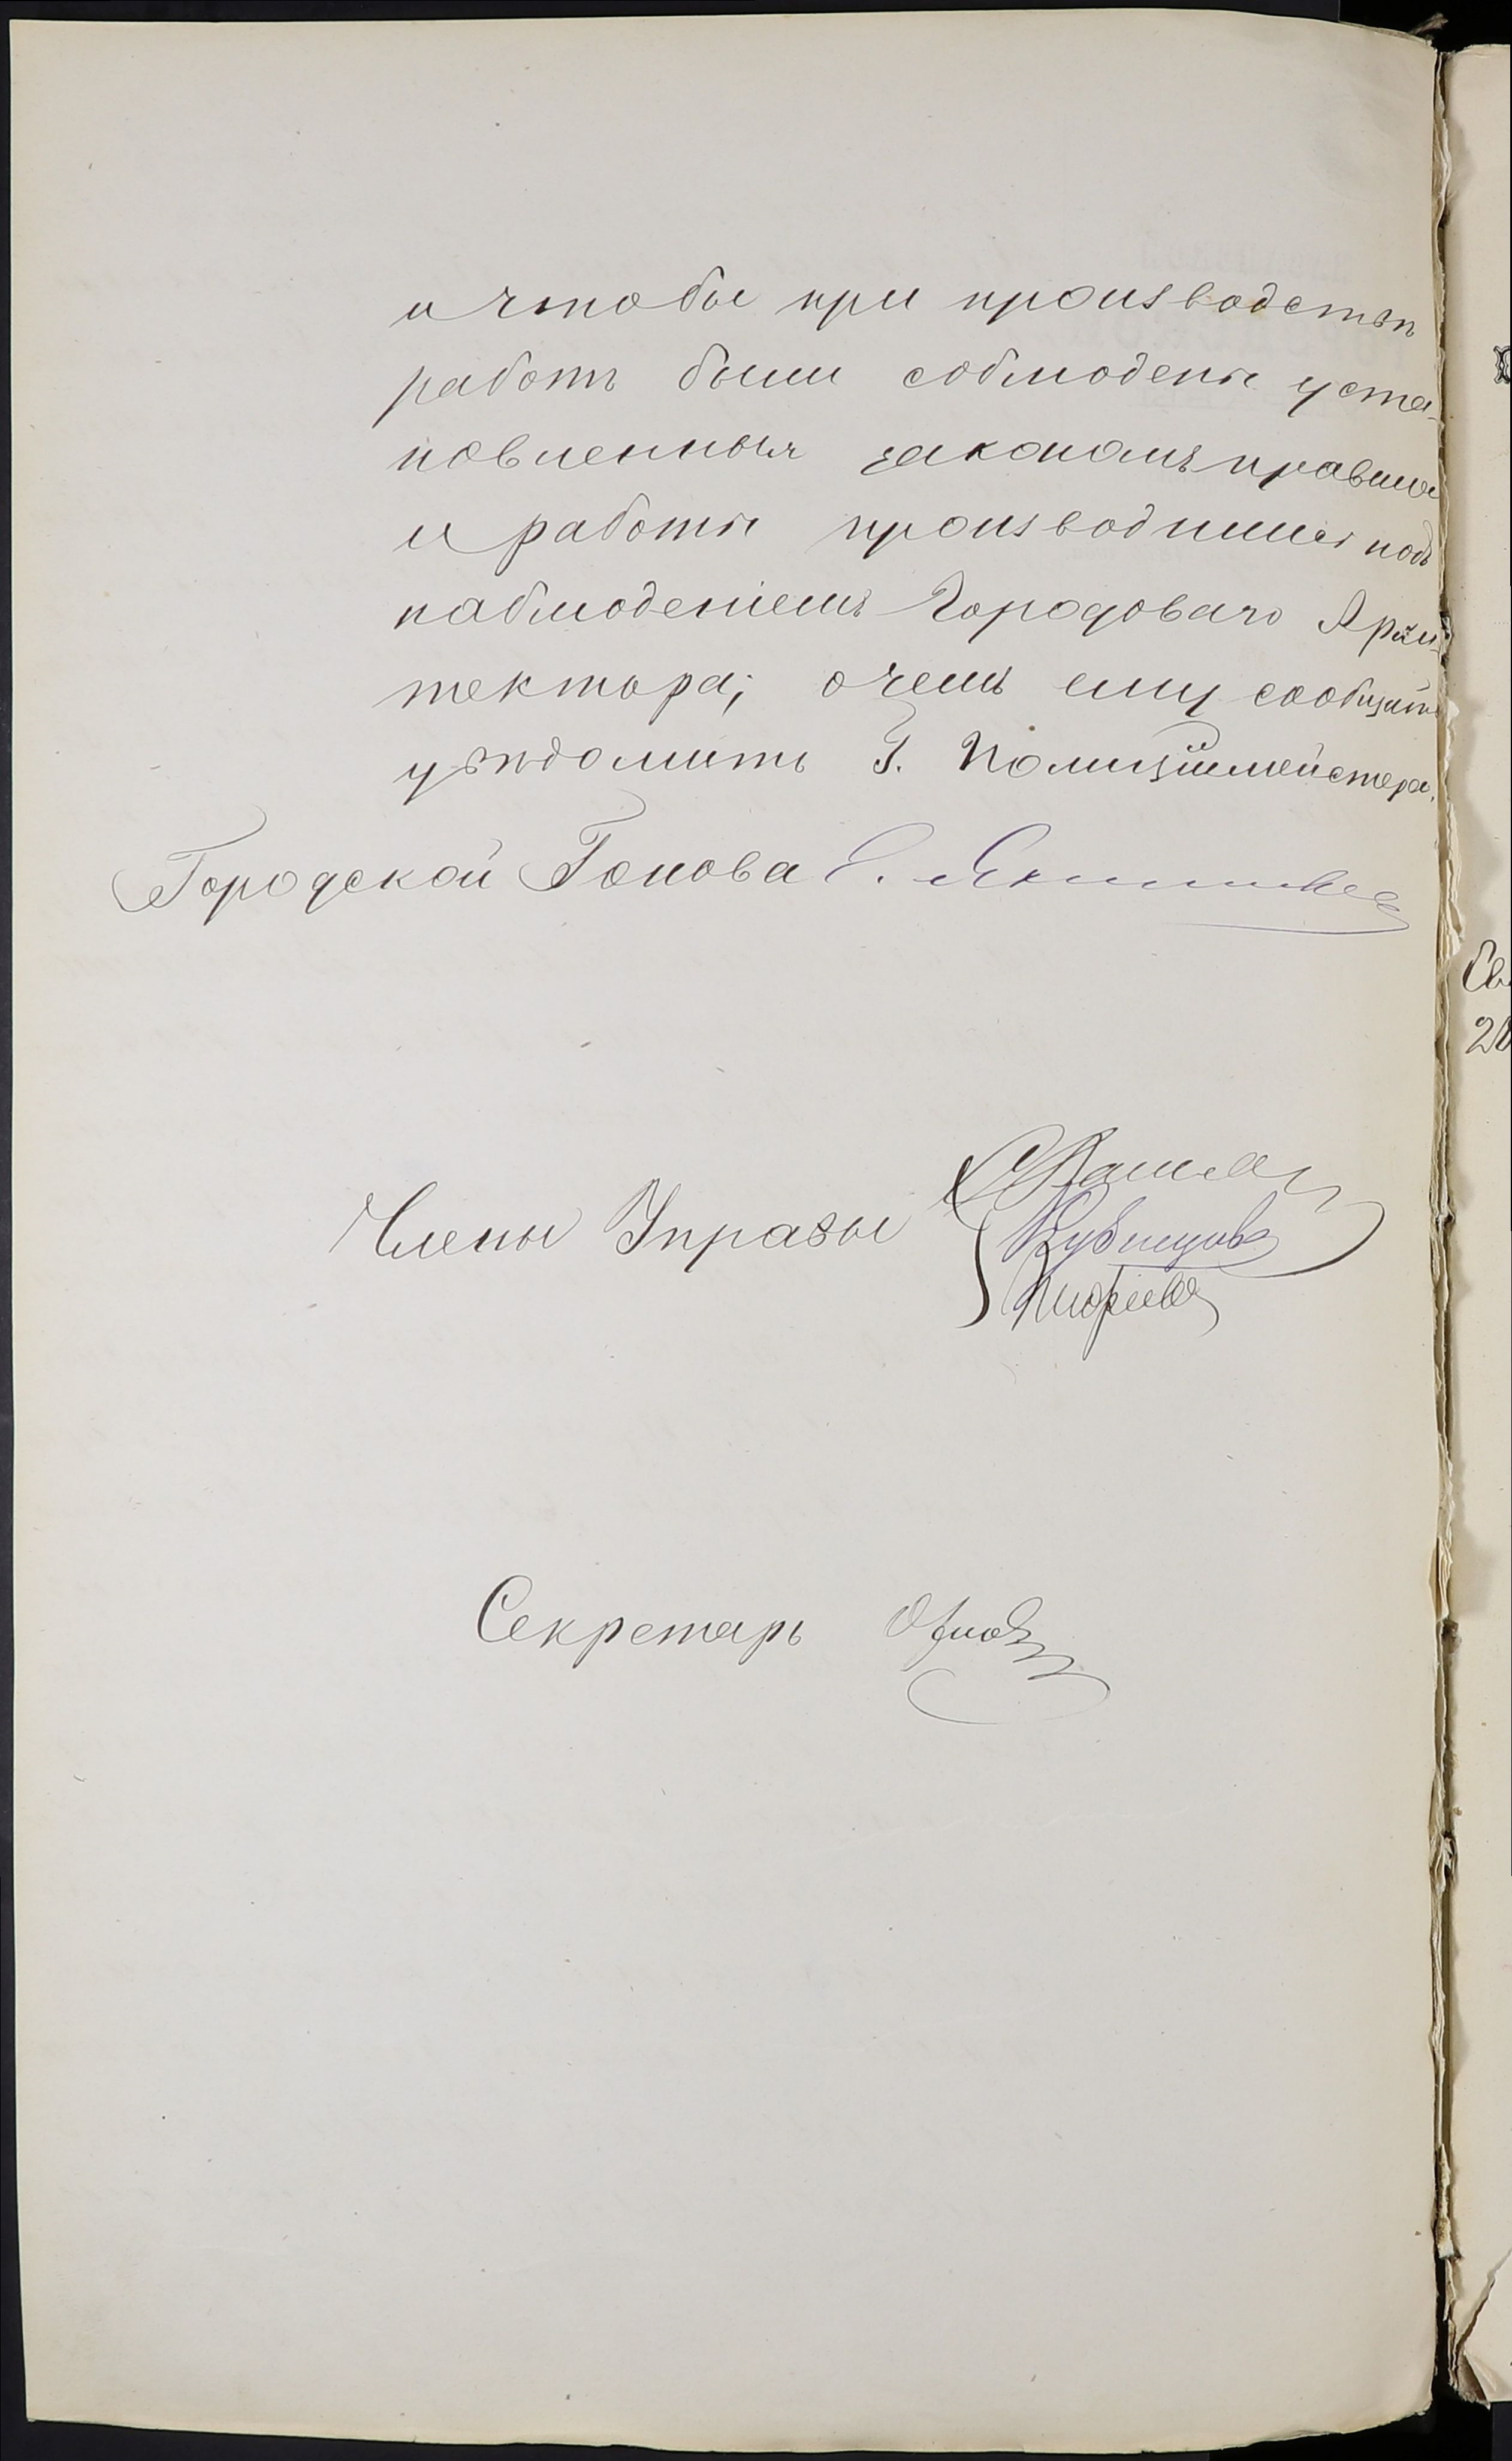 и чтобы при производствѣ
работъ были соблюдены уста-
новленныя закономъ правила
и работы производились подъ
наблюденіемъ Городоваго Архи-
тектора; о чемъ ему сообщить
увѣдомить Г. Полиціймейстера.
Городской Голова
Члены Управы
Кубинцовъ
Секретарь